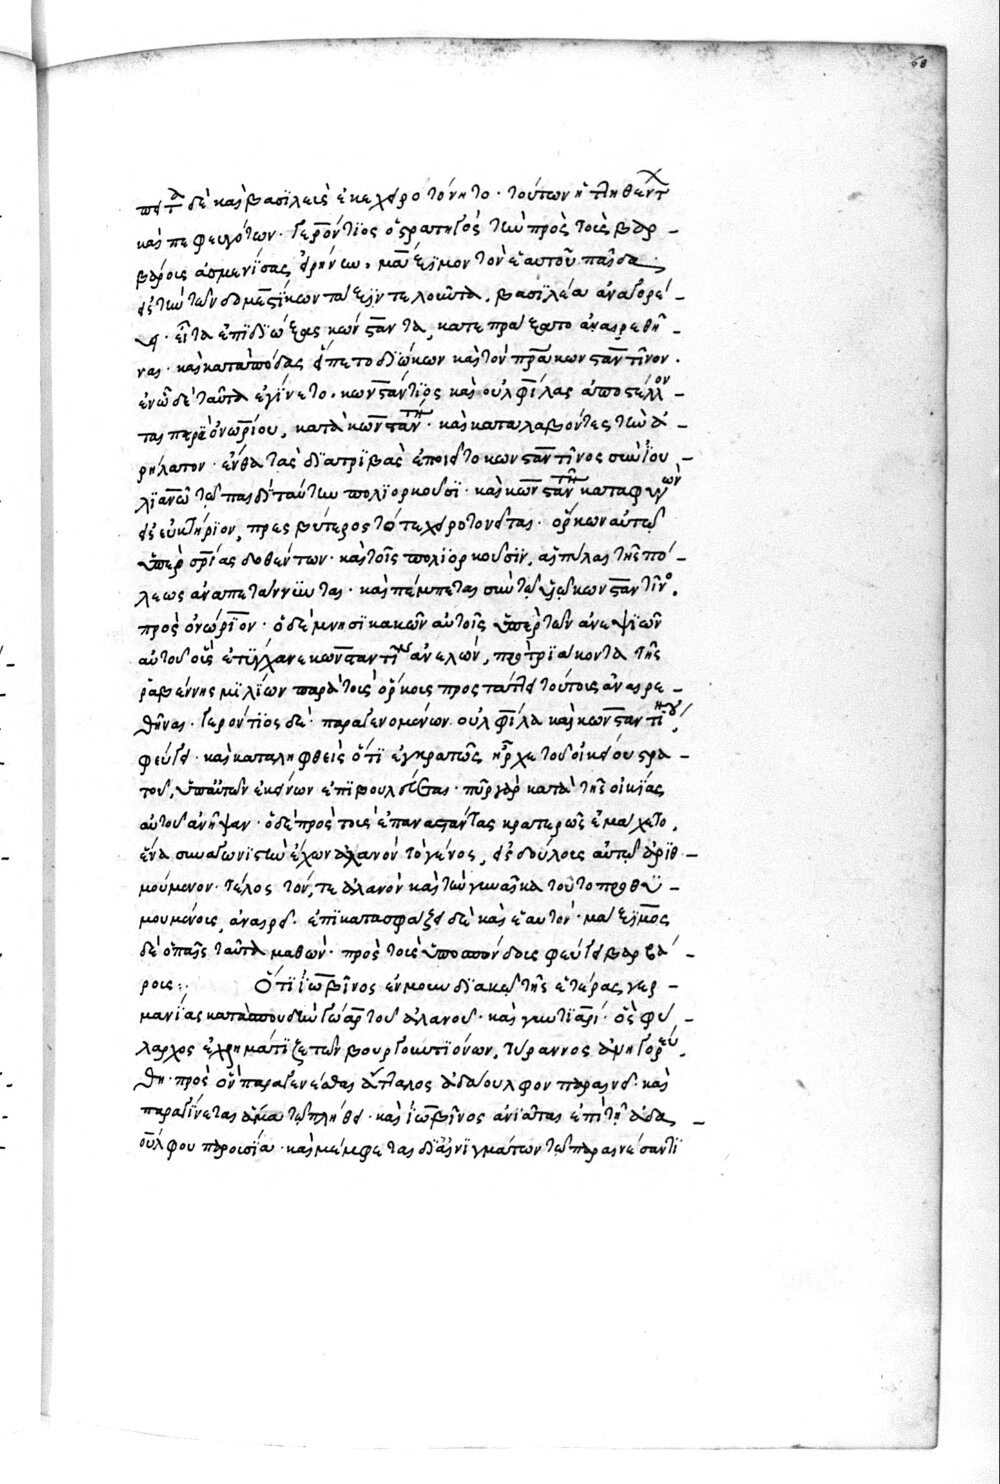 δὲ καὶ βασιλεὺς ἐκεχειροτόνητο· τούτων ἡττηθέντ
καὶ πεφευγότων· Γερόντιος ὁ στρατηγὸς τὴν πρὸς τοὺς βαρ-
βάρους ἀσμενίσας εἰρήνην, Μάξιμον τὸν ἑαυτοῦ παῖδα
εἰς τὴν τῶν δομεστίκων τάξιν τελοῦντα, βασιλέα ἀναγορεύ-
ει· εἶτα ἐπιδιώξας Κώνσταντα, κατεπράξατο ἀναιρεθῆ-
ναι· καὶ κατὰ πόδας εἵπετο διώκων καὶ τὸν πρα Κωνσταντῖνον·
ἐν ᾧ δὲ ταῦτα ἐγίνετο, Κωνστάντιος καὶ Οὐλφίλας ἀποστέλλον
ται παρὰ Ὀνωρίου, κατὰ Κωνσταντ· καὶ καταλαβόντες τὴν Ἀ-
ρήλατον· ἔνθα τὰς διατριβὰς ἐποιεῖτο Κωνσταντῖνος σὺν Ἰου-
λιανῷ τῷ παιδὶ ταύτην πολιορκοῦσι· καὶ Κωνσταντ καταφυγὼν
εἰς εὐκτήριον, πρεσβύτερος τότε χειροτονεῖται· ὅρκων αὐτῷ
ὑπὲρ σριας δοθέντων· καὶ τοῖς πολιορκοῦσιν, αἱ πύλαι τῆς πό-
λεως ἀναπετάννυνται· καὶ πέμπεται σὺν τῷ υἱῷ Κωνσταντῖνος
πρὸς Ὀνώριον· ὁ δὲ μνησικακῶν αὐτοῖς ὑπὲρ τῶν ἀνεψιῶν
αὐτοῦ οὓς ἐτύγχανε Κωνσταντῖνος ἀνελών, πρὸ τριάκοντα τῆς
Ῥαβέννης μιλίων παρὰ τοὺς ὅρκους προστάττει τούτους ἀναιρε-
θῆναι· Γερόντιος δὲ· παραγενομένων Οὐλφίλα καὶ Κωνσταντί
φεύγει· καὶ καταληφθεὶς ὅτι ἐγκρατῶς ἦρχε τοῦ οἰκείου στρα
τοῦ, ὑπ' αὐτῶν ἐκείνων ἐπιβουλεύεται· πῦρ γὰρ κατὰ τῆς οἰκίας
αὐτοῦ ἀνῆψαν· ὁ δὲ πρὸς τοὺς ἐπαναστάντας κρατερῶς ἐμάχετο,
ἕνα συναγωνιστὴν ἔχων Ἀλανὸν τὸ γένος, εἰς δούλους αὐτοῦ ἀριθ-
μούμενον· τέλος τόν τε Ἀλανὸν καὶ τὴν γυναῖκα τοῦτο προθυ-
μουμένους, ἀναιρεῖ· ἐπικατασφάζει δὲ καὶ ἑαυτόν· Μάξιμος
δὲ ὁ παῖς ταῦτα μαθὼν· πρὸς τοὺς ὑποσπόνδους φεύγει βαρβά-
ρους:· Ὅτι Ἰωβῖνος ἐν Μουνδιακῷ τῆς ἑτέρας Γερ-
μανίας κατὰ σπουδὴν Γώαρ τοῦ Ἀλανοῦ· καὶ Γυντιαρί· ὃς φύ-
λαρχος ἐχρημάτιζε τῶν Βουργουντιόνων, τύραννος ἀνηγορεύ
θη· πρὸς ὃν παραγενέσθαι Ἄτταλος Ἀδάουλφον παραινεῖ· καὶ
παραγίνεται ἅμα τῷ πλήθει· καὶ Ἰωβῖνος ἀνιᾶται ἐπὶ τῇ Ἀδα-
ούλφου παρουσίᾳ· καὶ μέμφεται δι' αἰνιγμάτων τῷ παραινέσαντι